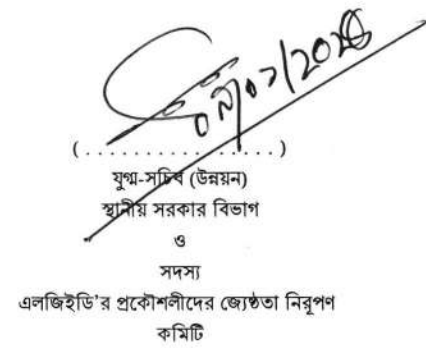 (. . . . . . . . . . . . . . . . . .)
যুগ্ম-সচিব (উন্নয়ন)
স্থানীয় সরকার বিভাগ
ও
সদস্য
এলজিইডি'র প্রকৌশলীদের জ্যেষ্ঠতা নিরূপণ
কমিটি